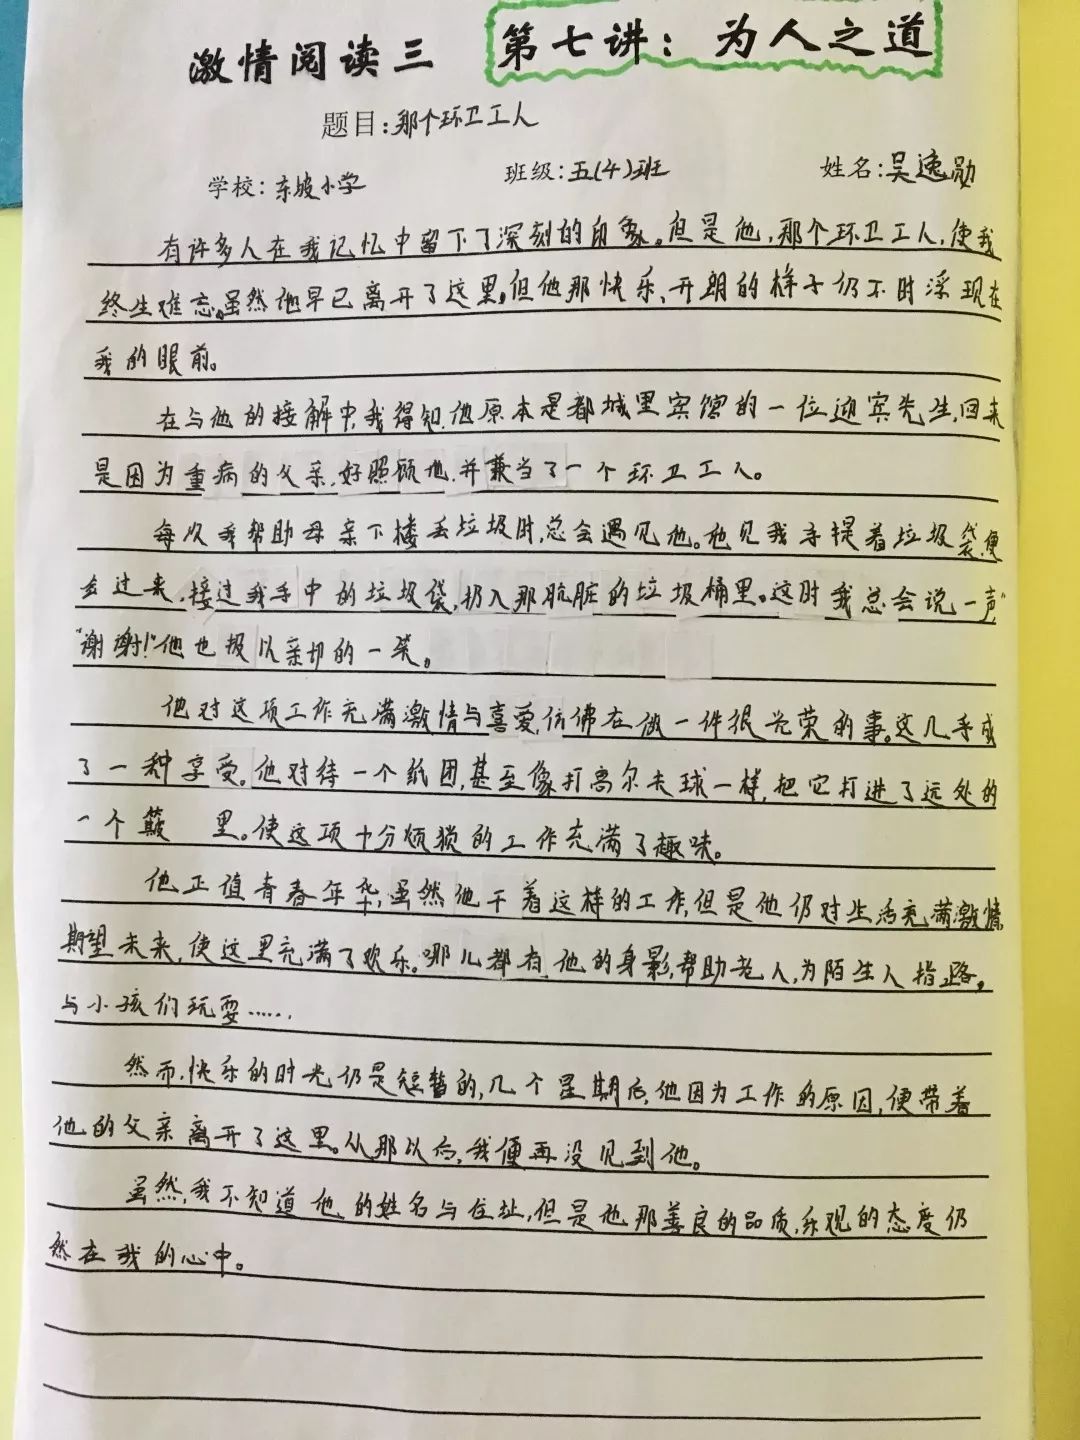 激情阅读三 第七讲：为人之道
题目：那个环卫工人
学校：东坡小学 班级：五(4)班 姓名：吴逸勋
有许多人在我记忆中留下了深刻的印象。但是他，那个环卫工人，使我
终生难忘。虽然他早已离开了这里，但他那快乐、开朗的样子仍不时浮现在
我的眼前。
在与他的接解中，我得知，他原本是都城里宾馆的一位迎宾先生，回来
是因为重病的父亲，好照顾他，并兼当了一个环卫工人。
每次我帮助母亲下楼丢垃圾时，总会遇见他。他见我手提着垃圾袋，便
会过来，接过我手中的垃圾袋，扔入那肮脏的垃圾桶里。这时我总会说一声"
"谢谢！"他也报以亲切的一笑。
他对这项工作充满激情与喜爱，仿佛在做一件很光荣的事。这几乎成
了一种享受。他对待一个纸团，甚至像打高尔夫球一样，把它打进了远处的
一个簸 里。使这项十分烦琐的工作充满了趣味。
他正值青春年华，虽然他干着这样的工作，但是他仍对生活充满激情，
期望未来，使这里充满了欢乐。哪儿都有他的身影，帮助老人，为陌生人指路，
与小孩们玩耍……
然而，快乐的时光仍是短暂的，几个星期后，他因为工作的原因，便带着
他的父亲离开了这里。从那以后，我便再没见到他。
虽然，我不知道他的姓名与住址，但是他那善良的品质，乐观的态度仍
然在我的心中。